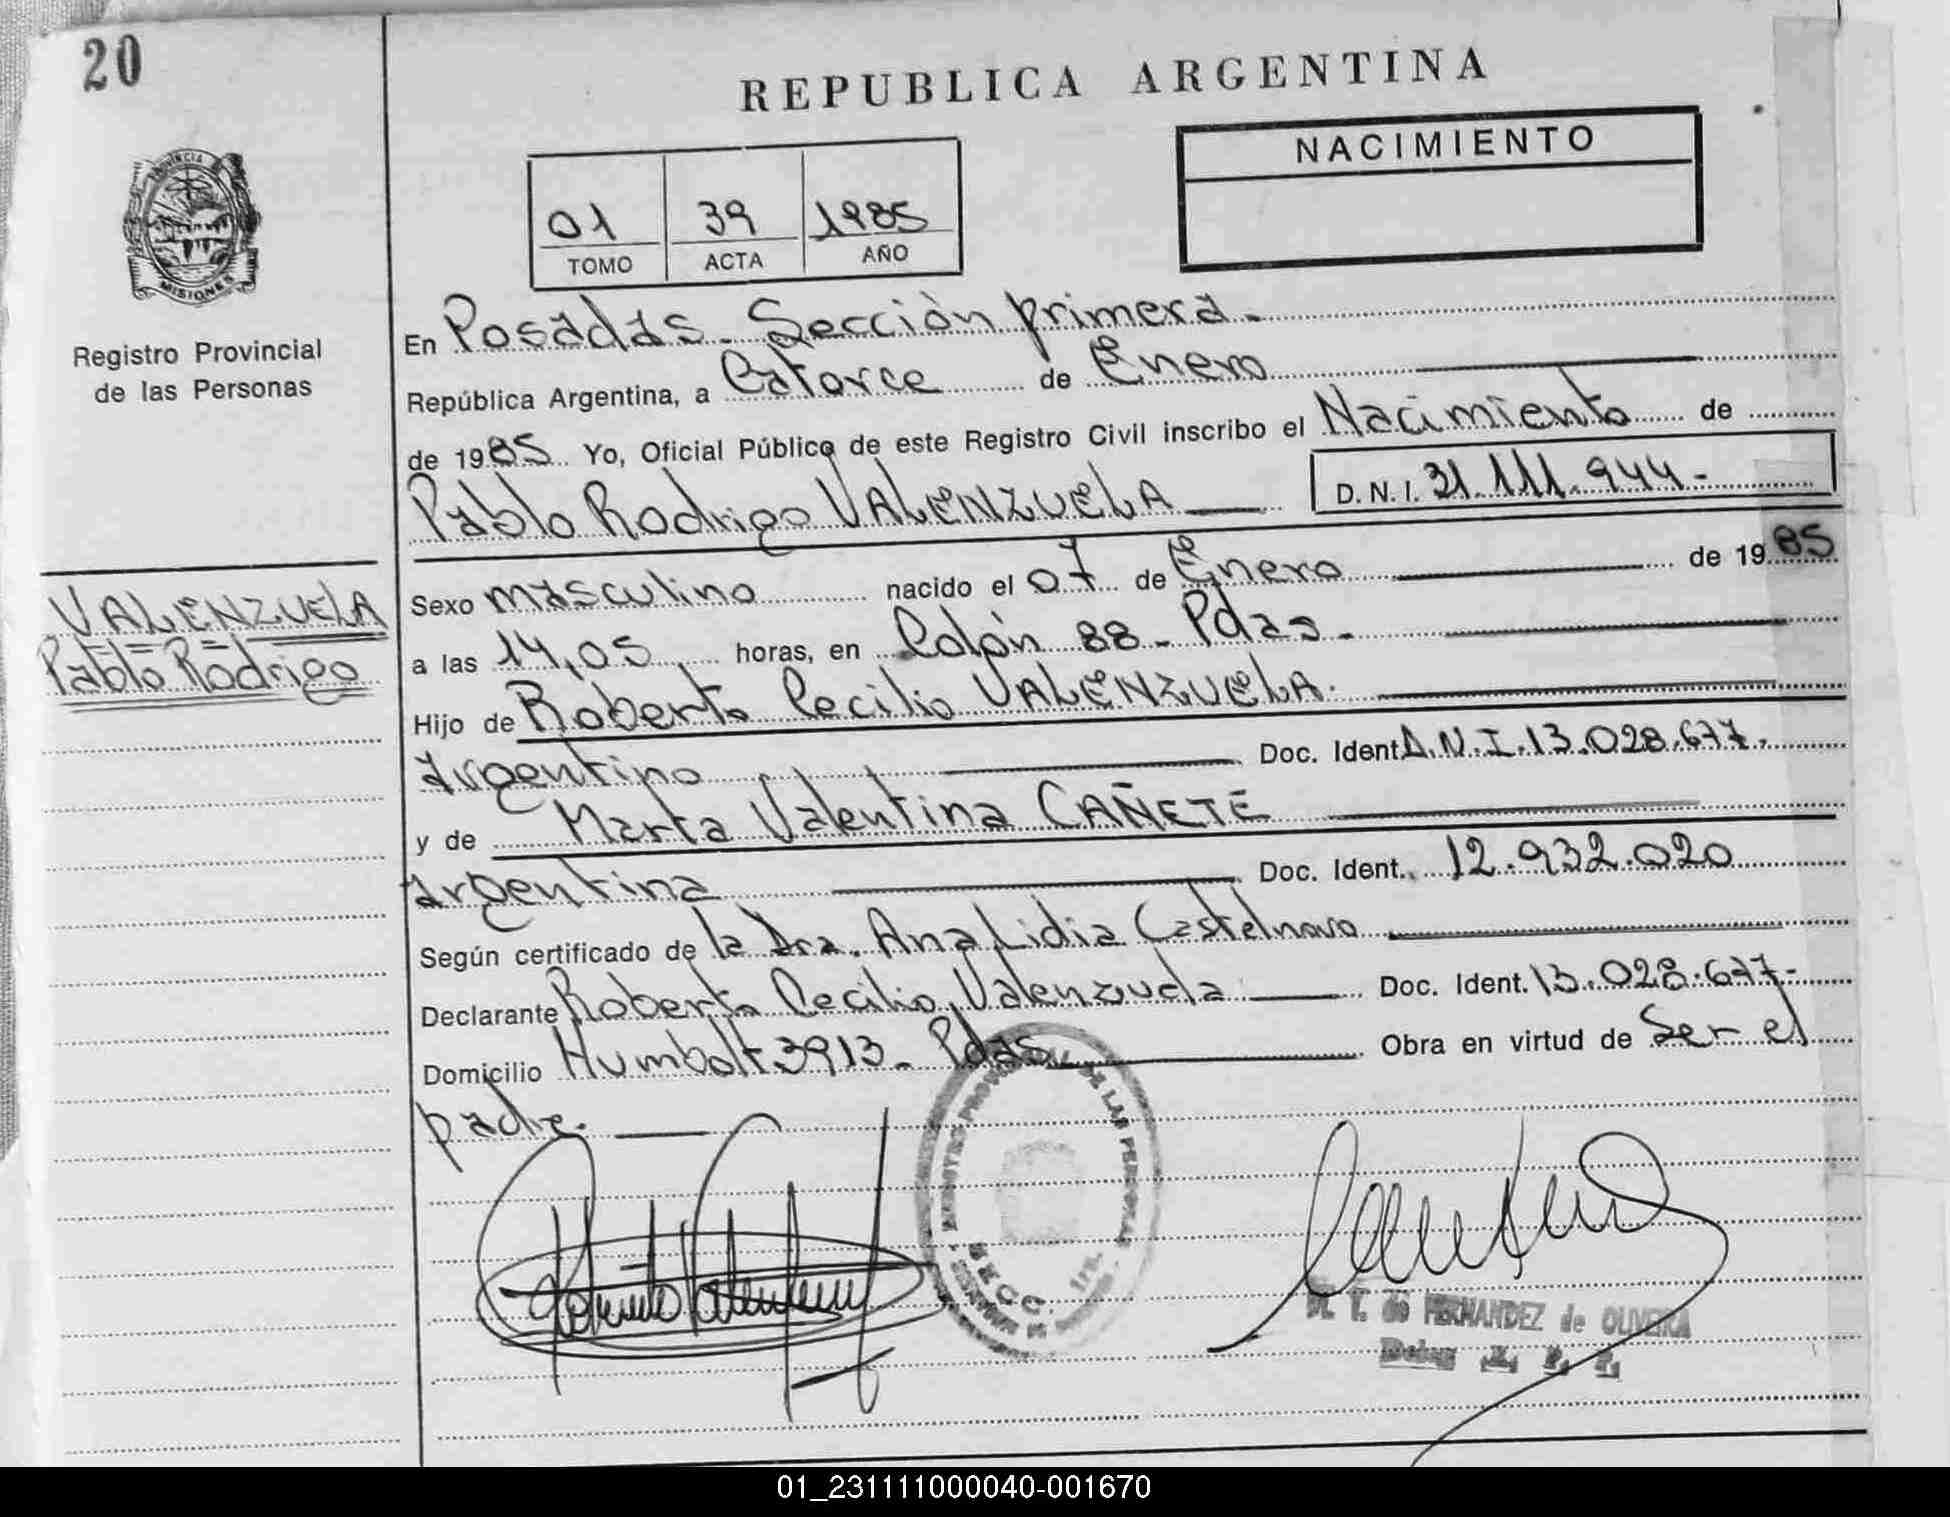 20
REPUBLICA ARGENTINA
NACIMIENTO
PROVINCIA
MISIONES
01 39 1985
TOMO ACTA AÑO
Registro Provincial
de las Personas
En Posadas. Sección primera.
República Argentina, a Catorce de Enero
de 1985 Yo, Oficial Público de este Registro Civil inscribo el Nacimiento de
Pablo Rodrigo VALENZUELA D.N.I. 31.111.944-
VALENZUELA
Pablo Rodrigo
Sexo masculino nacido el 07 de Enero de 1985
a las 14,05 horas, en Colón 88 - Pdas.
Hijo de Roberto Cecilio VALENZUELA.
argentino Doc. Ident. D.N.I. 13.028.677.
y de Marta Valentina CAÑETE
argentina Doc. Ident. 12.932.020
Según certificado de la Dra. Ana Lidia Castelnovo
Declarante Roberto Cecilio Valenzuela Doc. Ident. 13.028.677-
Domicilio Humbolt 3913 - Pdas Obra en virtud de Ser el
padre.
DE LAS PERSONAS
SECC. 1ra.
de FERNANDEZ de OLIVEIRA
01_231111000040-001670